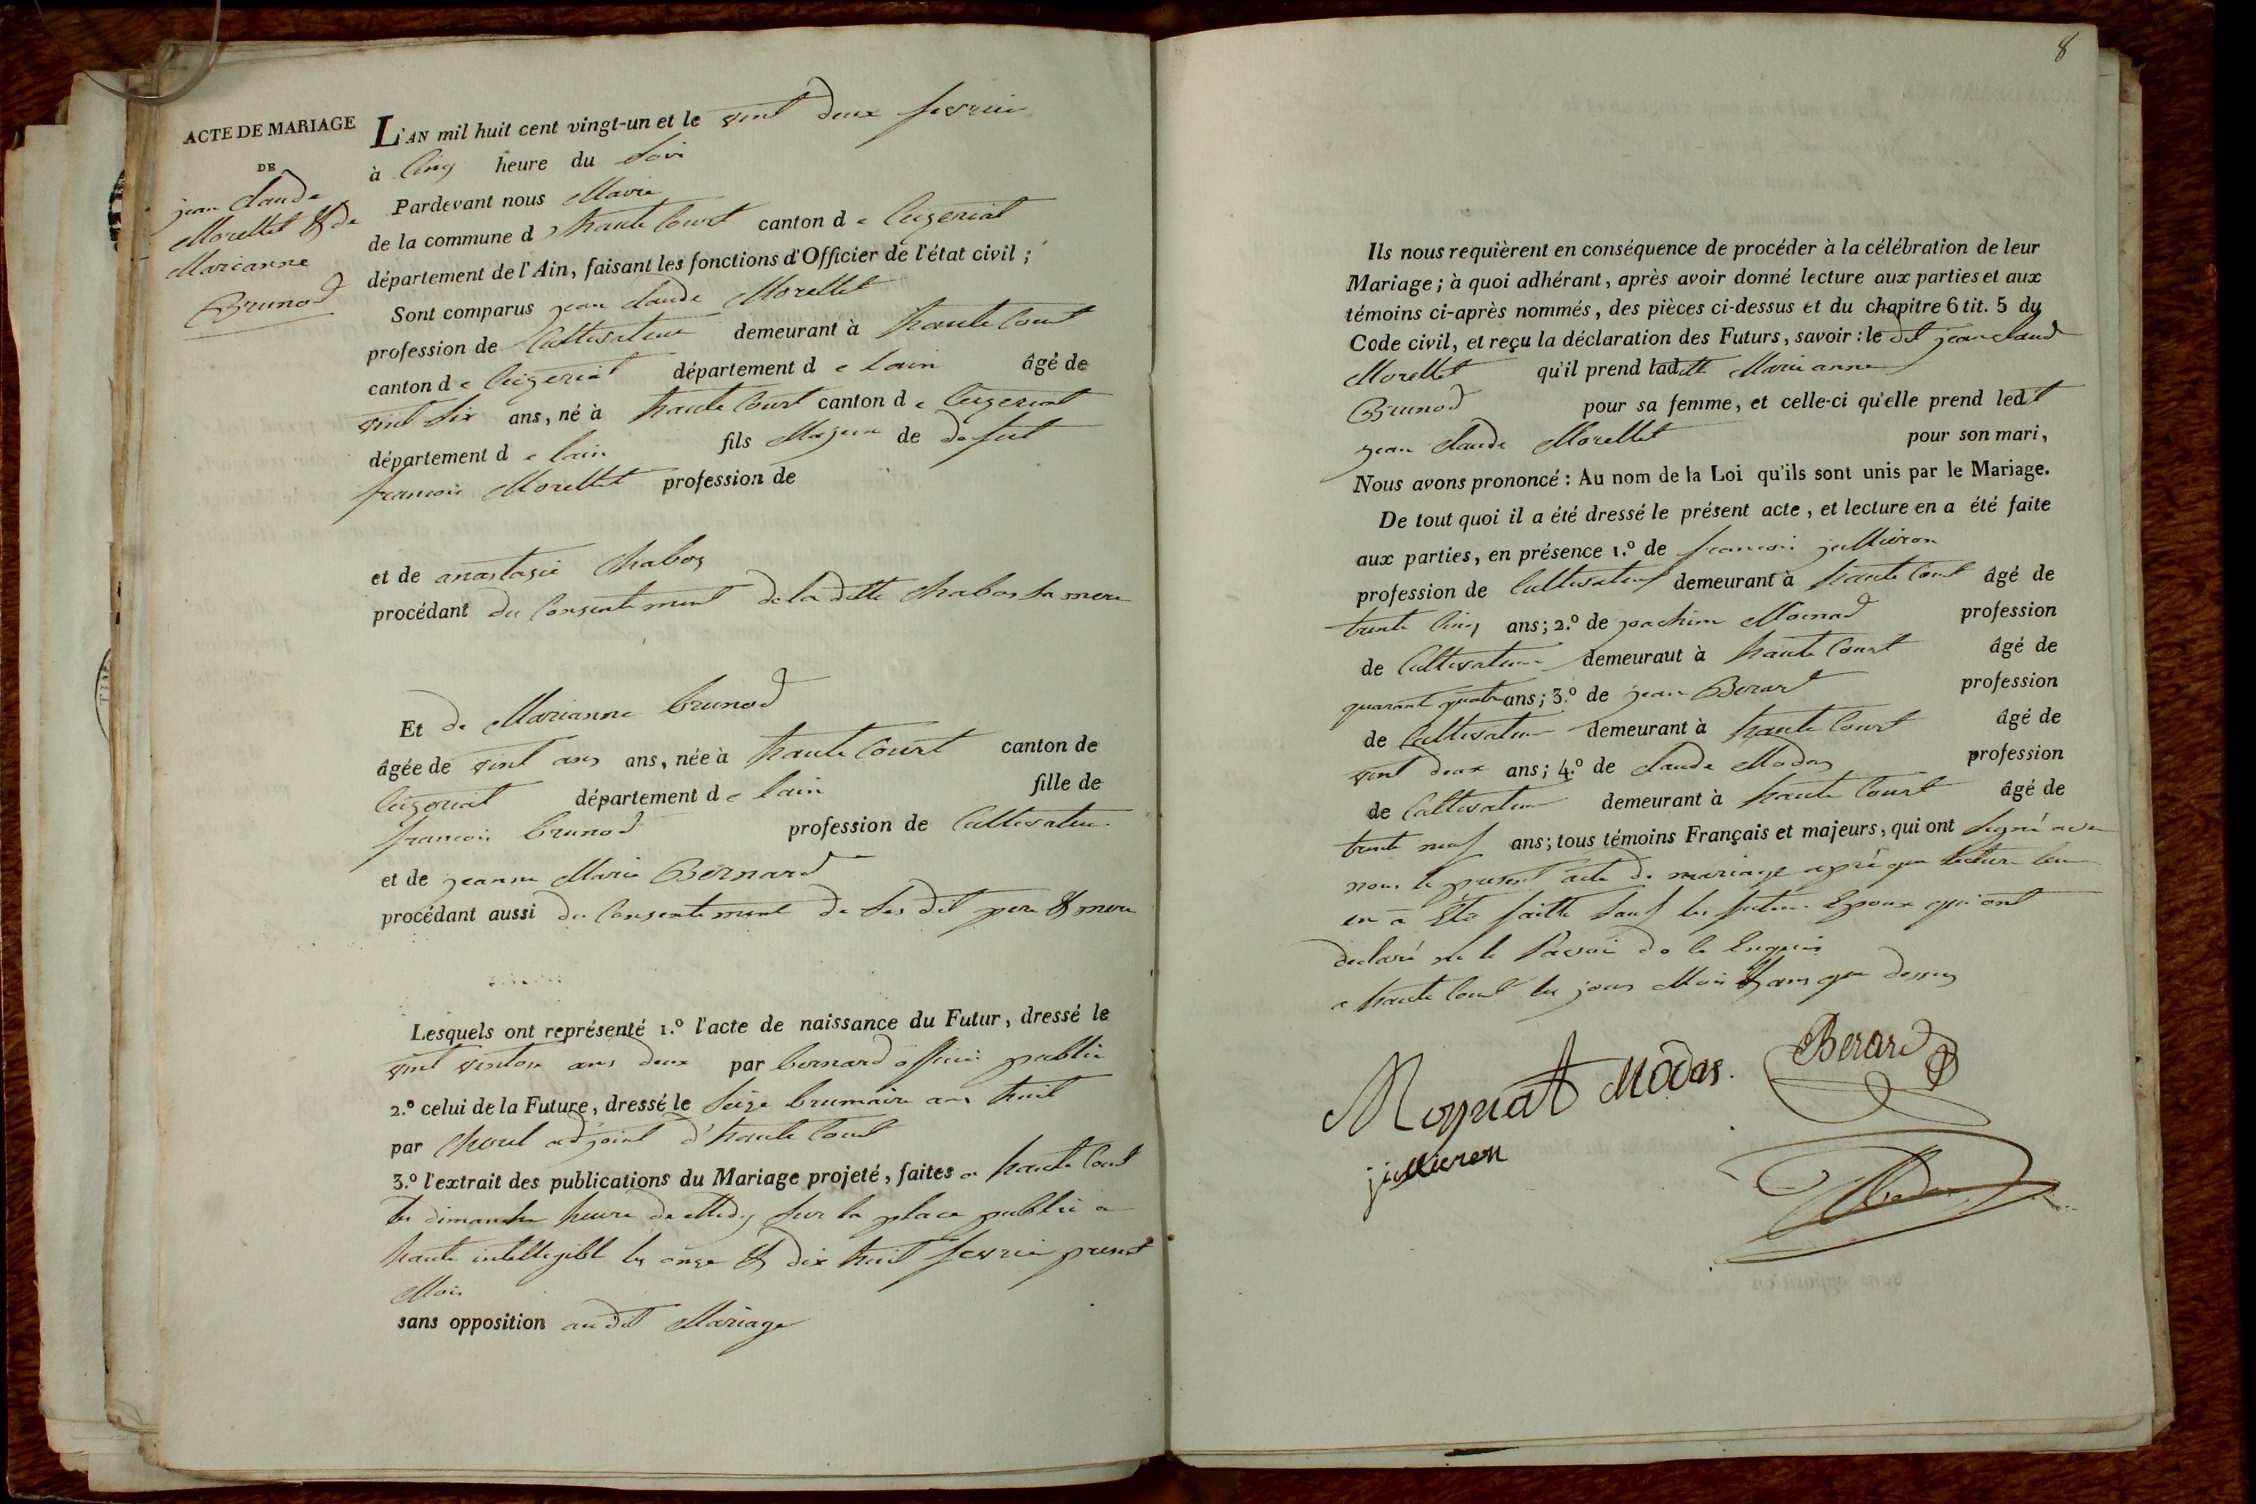 ACTE DE MARIAGE
DE
jean claude
Morellet & de
Marianne
Brunod
L'AN mil huit cent vingt-un et le vint deux fevrier
à Cinq heure du Soir
Pardevant nous Maire
de la commune d'haute Court canton de Ceizeriat
département de l'Ain, faisant les fonctions d'Officier de l'état civil ;
Sont comparus jean claude Morellet
profession de Cultivateur demeurant à haute Court
canton de Ceizeriat département de lain âgé de
vint Six ans, né à haute Court canton de Ceizeriat
département de lain fils Majeur de defunt
francois Morellet profession de
et de anastasie Chabos
procédant du Consentement de la ditte Chabos Sa mere
Et de Marianne brunod
âgée de vint ans ans, née à haute Court canton de
Ceizeriat département de lain fille de
francois brunod profession de Cultivateur
et de jeanne Marie Bernard
procédant aussi du Consentement de Ses dit pere & mere
Lesquels ont représenté 1.º l'acte de naissance du Futur, dressé le
vint ventose ans deux par bernard officier public
2.º celui de la Future, dressé le Seize brumaire ans huit
par adjoint d'haute Court
3.º l'extrait des publications du Mariage projeté, faites a haute Court
les dimanche heure de Midy Sur la place public a
haute intelligible les onze & dix huit fevrier present
Mois
sans opposition audit Mariage
8
Ils nous requièrent en conséquence de procéder à la célébration de leur
Mariage ; à quoi adhérant, après avoir donné lecture aux parties et aux
témoins ci-après nommés, des pièces ci-dessus et du chapitre 6 tit. 5 du
Code civil, et reçu la déclaration des Futurs, savoir : le dit jean claud
Morellet qu'il prend laditte Marie anne
Brunod pour sa femme, et celle-ci qu'elle prend ledit
jean claude Morellet pour son mari,
Nous avons prononcé : Au nom de la Loi qu'ils sont unis par le Mariage.
De tout quoi il a été dressé le présent acte, et lecture en a été faite
aux parties, en présence 1.º de francois jullieron
profession de Cultivateur demeurant à haute Court âgé de
trente Cinq ans ; 2.º de joachim profession
de Cultivateur demeuraut à haute Court âgé de
quarant quatre ans ; 3.º de jean Berard profession
de Cultivateur demeurant à haute Court âgé de
vint deux ans ; 4.º de claude Modas profession
de Cultivateur demeurant à haute Court âgé de
trente neuf ans ; tous témoins Français et majeurs, qui ont Signé avec
nous le present acte de mariage aprè que lecture leur
en a Eté faitte Sauf les futur Epoux qui ont
declaré ne le Savoir de le Enquis
a haute Court les jour Mois & ans que dessus
Moynat Modas. Berard
jullieron